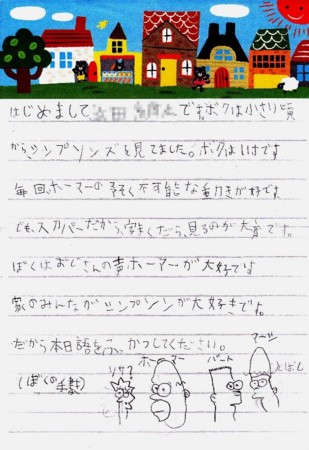 はじめまして 田 です。ボクは小さい頃
からシンプソンズを見てました。ボクは です
毎回、ホーマーの予そく不可能な動きが好です
でも、スカパーだから、 だら、見るのが大 です。
ぼくはおじさんの声ホーマーが大好です
家のみんながシンプソンが大好きです。
だから本日語を、ふっかつしてください。
リサ? ホーマー バート マージ
(ぼくの 手 )